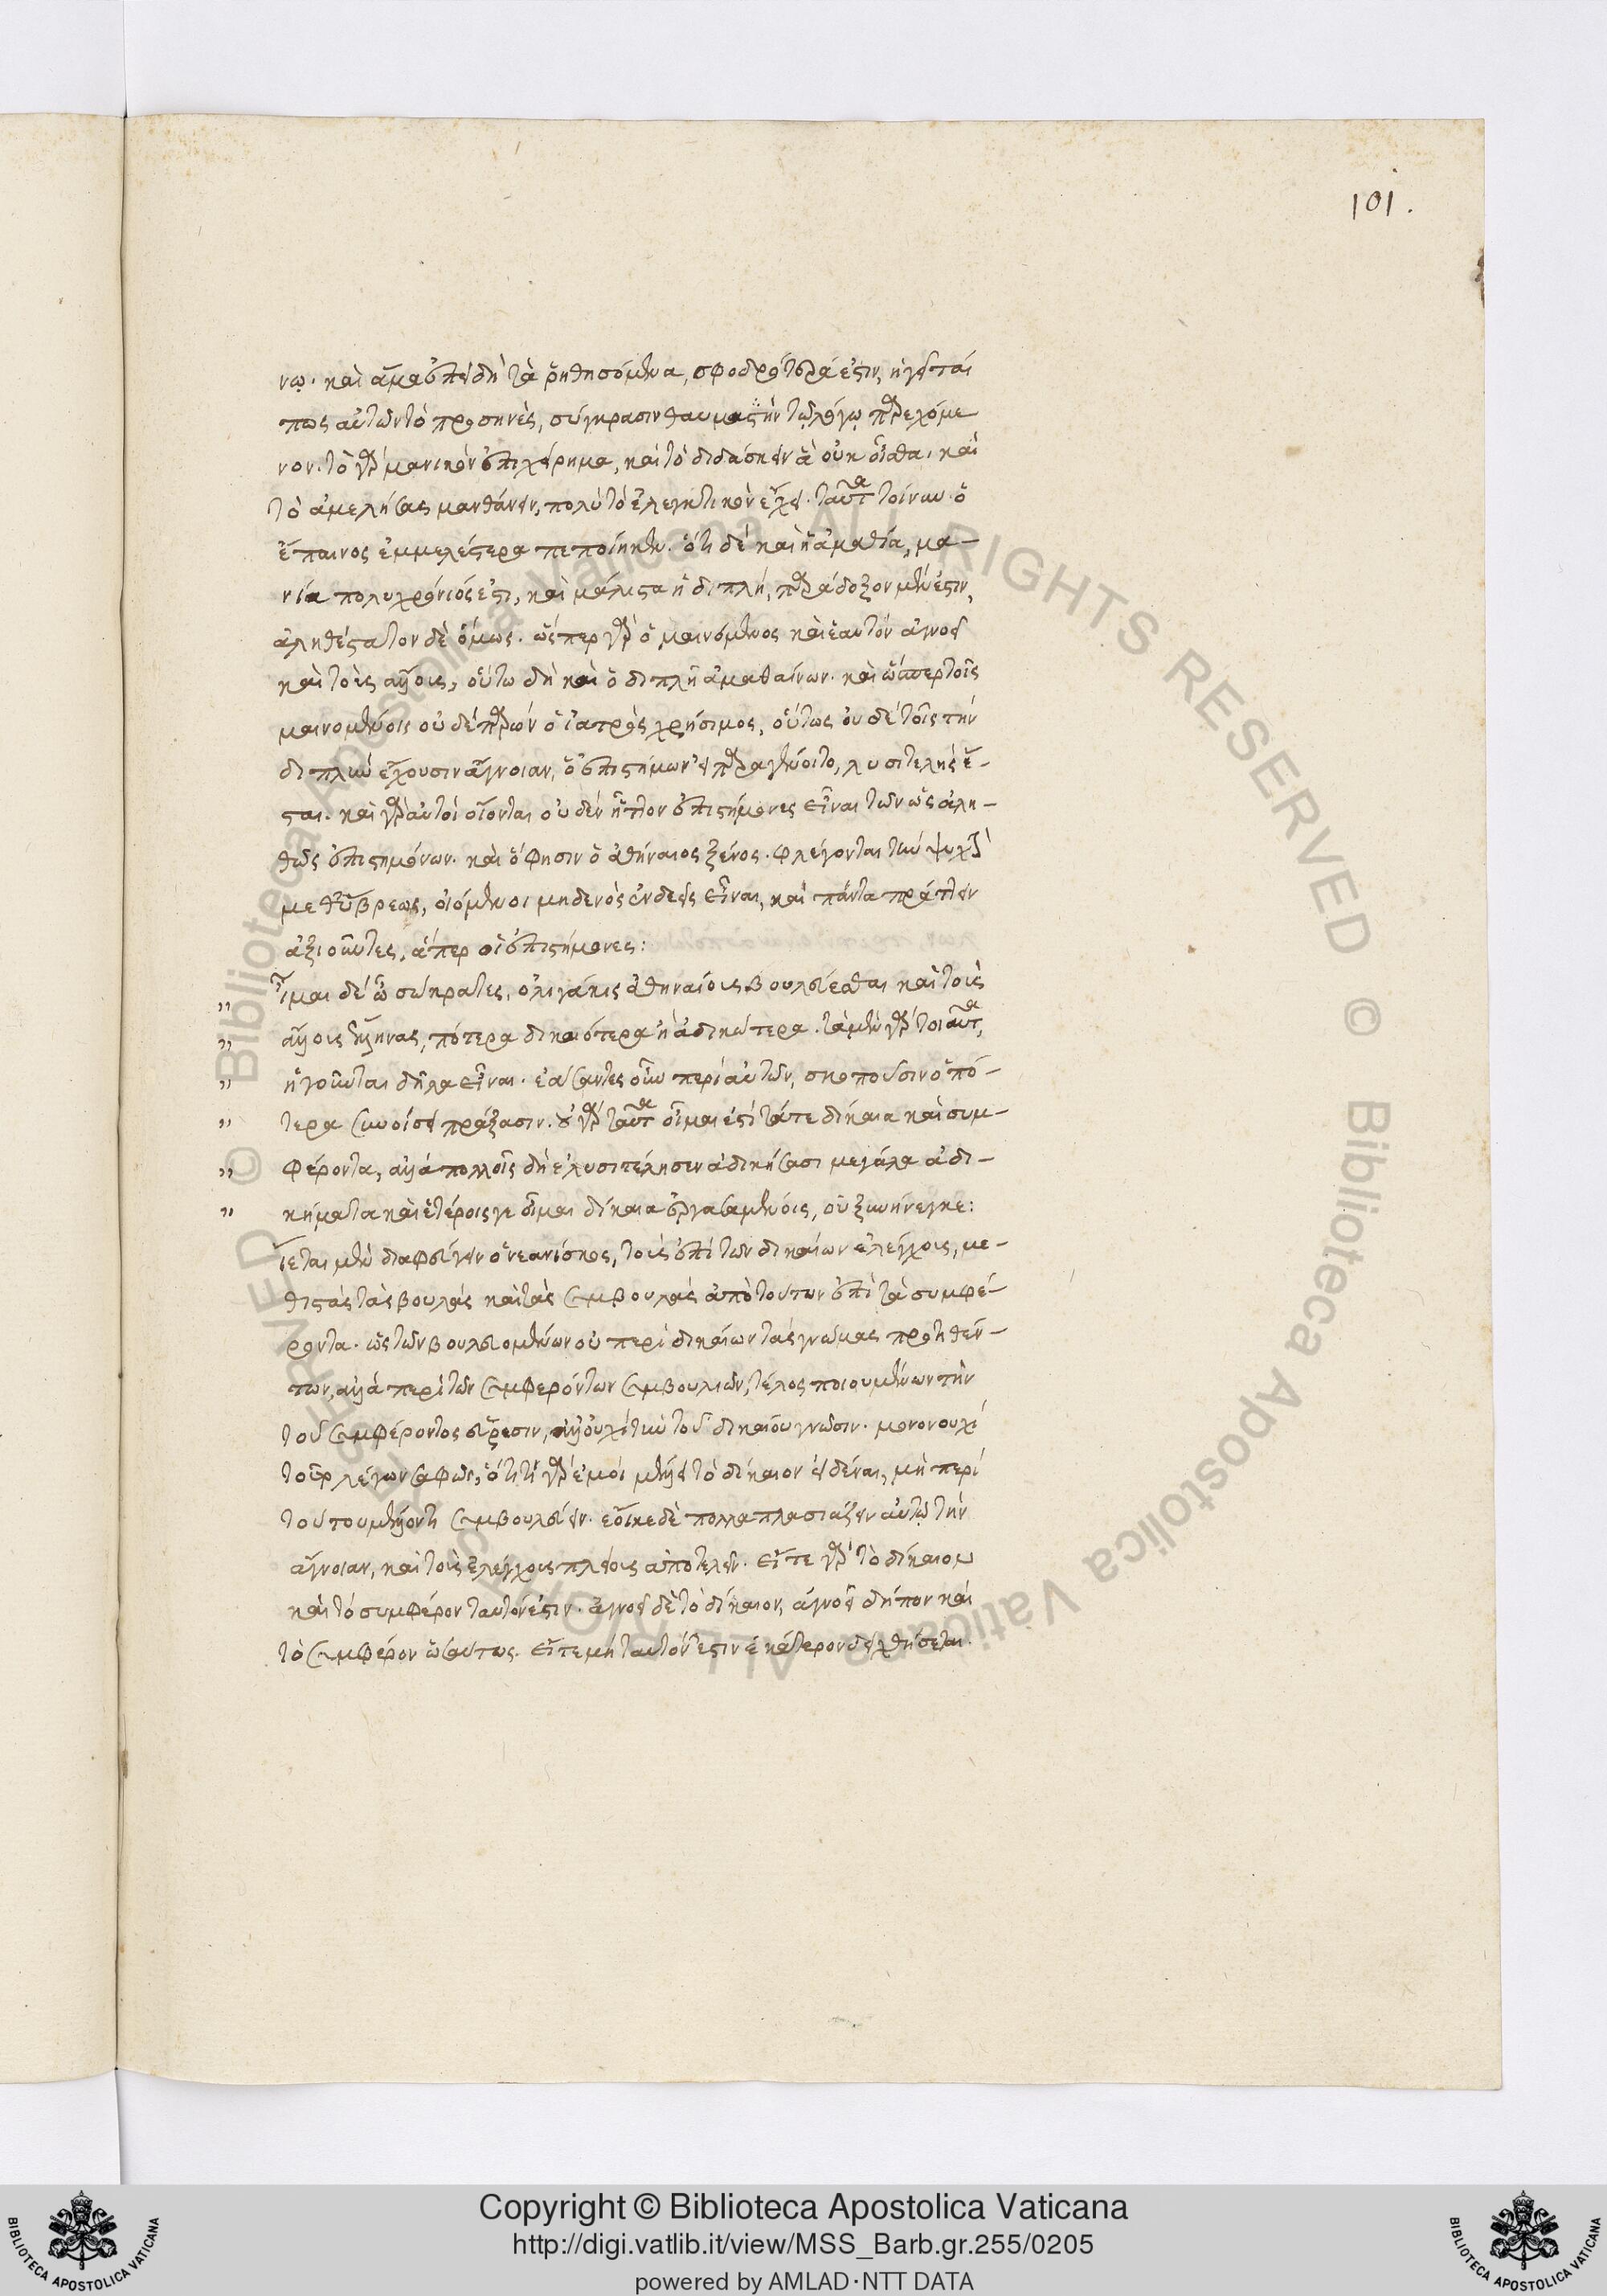 101.
νῳ. καὶ ἅμα ἐπειδὴ τὰ ῥηθησόμενα, σφοδρότερά ἐστιν, ἡγεῖταί
πως αὐτῶν τὸ προσηνὲς, σύγκρασιν θαυμαστὴν τῷ λόγῳ παρεχόμε
νον. τὸ γὰρ μανικὸν ἐπιχείρημα, καὶ τὸ διδάσκειν ἃ οὐκ οἶσθα, καὶ
τὸ ἀμελήσας μανθάνειν, πολὺ τὸ ἐλεγκτικὸν ἔχει. ταῦτα τοίνυν ὁ
ἔπαινος ἐμμελέστερα πεποίηκεν. ὅτι δὲ καὶ ἡ ἀμαθία, μα-
νία πολυχρόνιός ἐστι, καὶ μάλιστα ἡ διπλῆ, παράδοξον μέν ἐστιν,
ἀληθέστατον δὲ ὅμως. ὥσπερ γὰρ ὁ μαινόμενος καὶ ἑαυτὸν ἀγνοεῖ
καὶ τοὺς ἄλλους, οὕτω δὴ καὶ ὁ διπλῆ ἀμαθαίνων. καὶ ὥσπερ τοῖς
μαινομένοις οὐδὲ παρὼν ὁ ἰατρὸς χρήσιμος, οὕτως οὐδὲ τοῖς τὴν
διπλῆν ἔχουσιν ἄγνοιαν, ὁ ἐπιστήμων εἰ παραγένοιτο, λυσιτελὴς ἔ-
σται. καὶ γὰρ αὐτοὶ οἴονται οὐδὲν ἧττον ἐπιστήμονες εἶναι τῶν ὡς ἀλη-
θῶς ἐπιστημόνων. καὶ ὅ φησιν ὁ ἀθήναιος ξένος. φλέγονται τὴν ψυχὴν
μεθ' ὕβρεως, οἰόμενοι μηδενὸς ἐνδεεῖς εἶναι, καὶ πάντα πράττειν
ἀξιοῦντες, ἅπερ οἱ ἐπιστήμονες:
,, Οἶμαι δέ ὦ σώκρατες, ὀλιγάκις ἀθηναίους βουλεύεσθαι καὶ τοὺς
,, ἄλλους ἕλληνας, πότερα δικαιότερα ἢ ἀδικώτερα. τὰ μὲν γὰρ τοιαῦτα,
,, ἡγοῦνται δῆλα εἶναι. ἐάσαντες οὖν περὶ αὐτῶν, σκοποῦσιν ὁπό-
,, τερα συνοίσει πράξασιν. οὐ γὰρ ταῦτα οἶμαι ἐστὶ τά τε δίκαια καὶ συμ-
,, φέροντα, ἀλλὰ πολλοῖς δὴ ἐλυσιτέλησεν ἀδικήσασι μεγάλα ἀδι-
,, κήματα καὶ ἑτέροις γε οἶμαι δίκαια ἐργασαμένοις, οὐ ξυνήνεγκε:
Οἴεται μὲν διαφεύγειν ὁ νεανίσκος, τοὺς ἐπὶ τῶν δικαίων ἐλέγχους, με-
θιστὰς τὰς βουλὰς καὶ τὰς συμβουλὰς ἀπὸ τούτων ἐπὶ τὰ συμφέ-
ροντα. ὡς τῶν βουλευομένων οὐ περὶ δικαίων τὰς γνώμας προτιθέν-
των, ἀλλὰ περὶ τῶν συμφερόντων συμβουλιῶν, τέλος ποιουμένων τὴν
τοῦ συμφέροντος εὕρεσιν, ἀλλ' οὐχὶ τὴν τοῦ δικαίου γνῶσιν. μονονουχὶ
τοῦτο λέγων σαφῶς, ὅτι τί γὰρ ἐμοὶ μέλλει τὸ δίκαιον εἰδέναι, μὴ περὶ
τούτου μέλλοντι συμβουλεύειν. ἔοικε δὲ πολλαπλασιάζειν αὐτῷ τὴν
ἄγνοιαν, καὶ τοὺς ἐλέγχους πλείους ἀποτελεῖν. εἴτε γὰρ τὸ δίκαιον
καὶ τὸ συμφέρον ταυτόν ἐστιν. ἀγνοεῖ δὲ τὸ δίκαιον, ἀγνοεῖ δήπου καὶ
τὸ συμφέρον ὡσαύτως. εἴτε μὴ ταυτόν ἐστιν ἑκάτερον δειχθήσεται.
© Biblioteca Apostolica Vaticana ALL RIGHTS RESERVED © Biblioteca Apostolica Vaticana ALL RIGHTS RESERVED
Copyright © Biblioteca Apostolica Vaticana
http://digi.vatlib.it/view/MSS_Barb.gr.255/0205
powered by AMLAD·NTT DATA
BIBLIOTECA APOSTOLICA VATICANA
BIBLIOTECA APOSTOLICA VATICANA